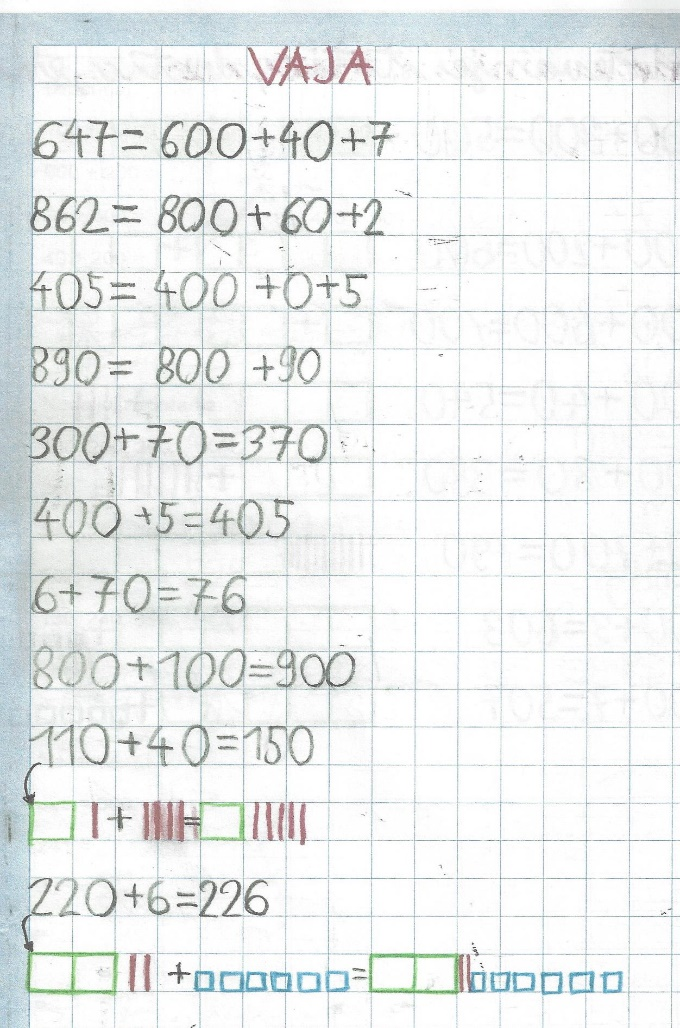 VAJA
647 = 600+40+7
862 = 800+60+2
405 = 400+0+5
890 = 800+90
300+70=370
400+5=405
6+70=76
800+100=900
110+40=150
220+6=226